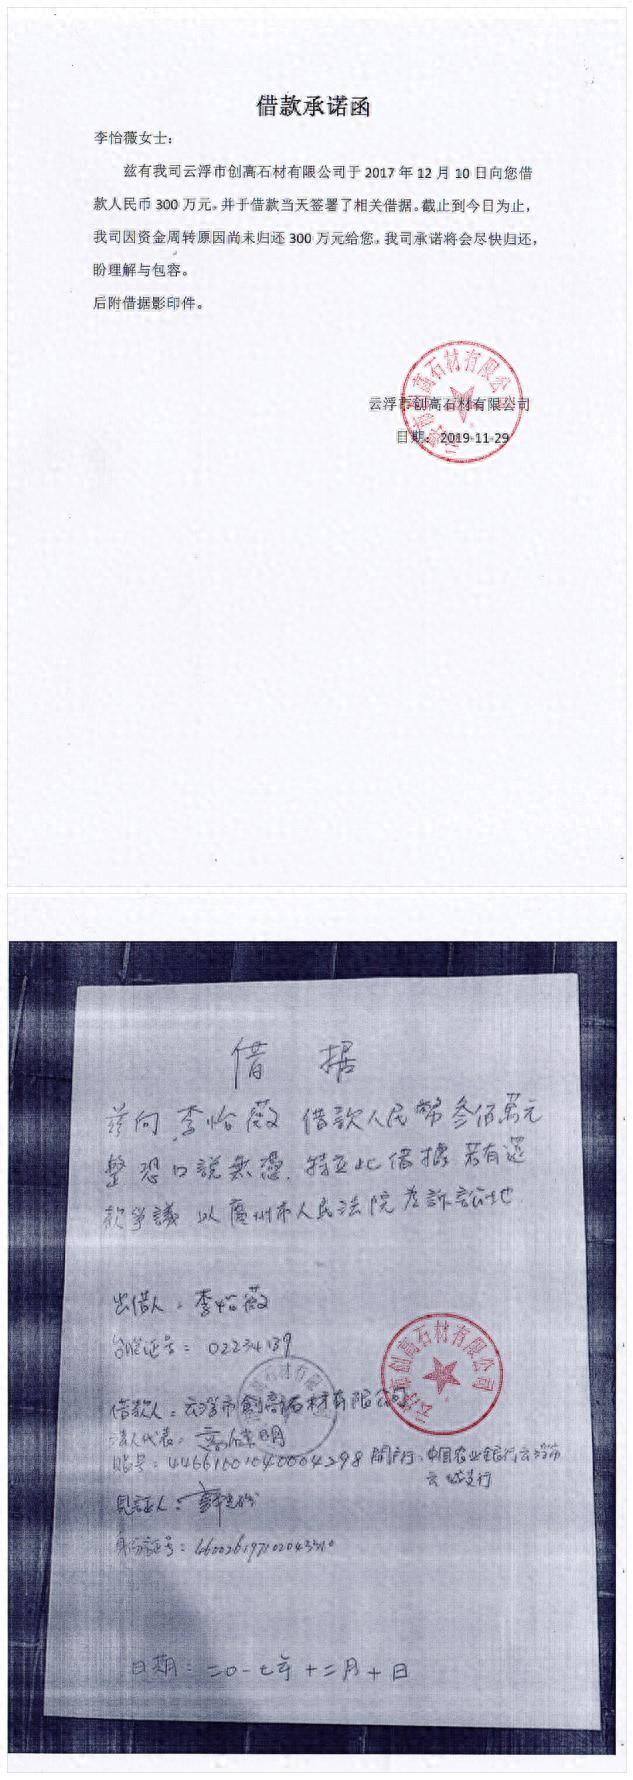 借款承诺函
李怡薇女士：
兹有我司云浮市创高石材有限公司于 2017 年 12 月 10 日向您借
款人民币 300 万元，并于借款当天签署了相关借据。截止到今日为止，
我司因资金周转原因尚未归还 300 万元给您，我司承诺将会尽快归还，
盼理解与包容。
后附借据影印件。
云浮市创高石材有限公司
云浮市创高石材有限公司
日期：2019-11-29
借 据
兹向 李怡薇 借款人民幣叁佰萬元
整 恐口說無憑，特立此借據 若有还
款爭議 以廣州市人民法院为訴訟地
出借人：李怡薇
台胞证号：02234139
云浮市创高石材有限公司
借款人：云浮市創高石材有限公司
法人代表：
账号：44661601040004298 開户行：中国农业金银行云浮市
云城支行
見証人：
身份証号：
日期：二〇一七年十二月十日